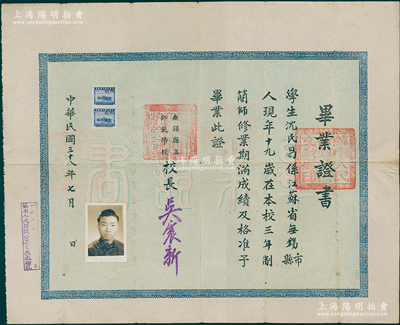 上海陽明拍賣
www.yangmingauction.com
畢業證書
學生沈民昌係江蘇省無錫市縣
人現年十九歲在本校三年制
簡師修業期滿成績及格准予
畢業此證
無錫縣立
師範學校
校長
中華民國三十八年七月 日
上海陽明拍賣
www.yangmingauction.com